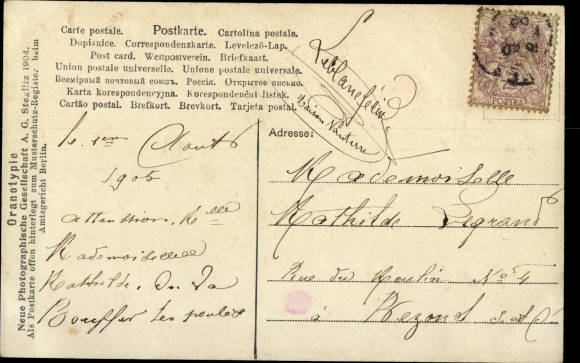 Carte postale. Postkarte. Cartolina postale.
Dopisnice. Correspondenzkarte. Levelező-Lap.
Post card. Weltpostverein. Briefkaart.
Union postale universelle. Unione postale universale.
Всемірный почтовый союзъ. Россія. Открытое письмо.
Karta korespondencyjna. Korespondenční lístek.
Cartão postal. Brefkort. Brevkort. Tarjeta postal.
Oranotypie
Neue Photographische Gesellschaft A. G. Steglitz 1904.
Als Postkarte offen hinterlegt zum Musterschutz-Register beim
Amtsgericht Berlin.
Adresse:
le 1er Aout
1905
attention, Mlle
Mademoiselle
Mathilde. On Va
Bouffer tes poulets
Mademoiselle
Mathilde Legrand
Rue du Moulin No 4
à